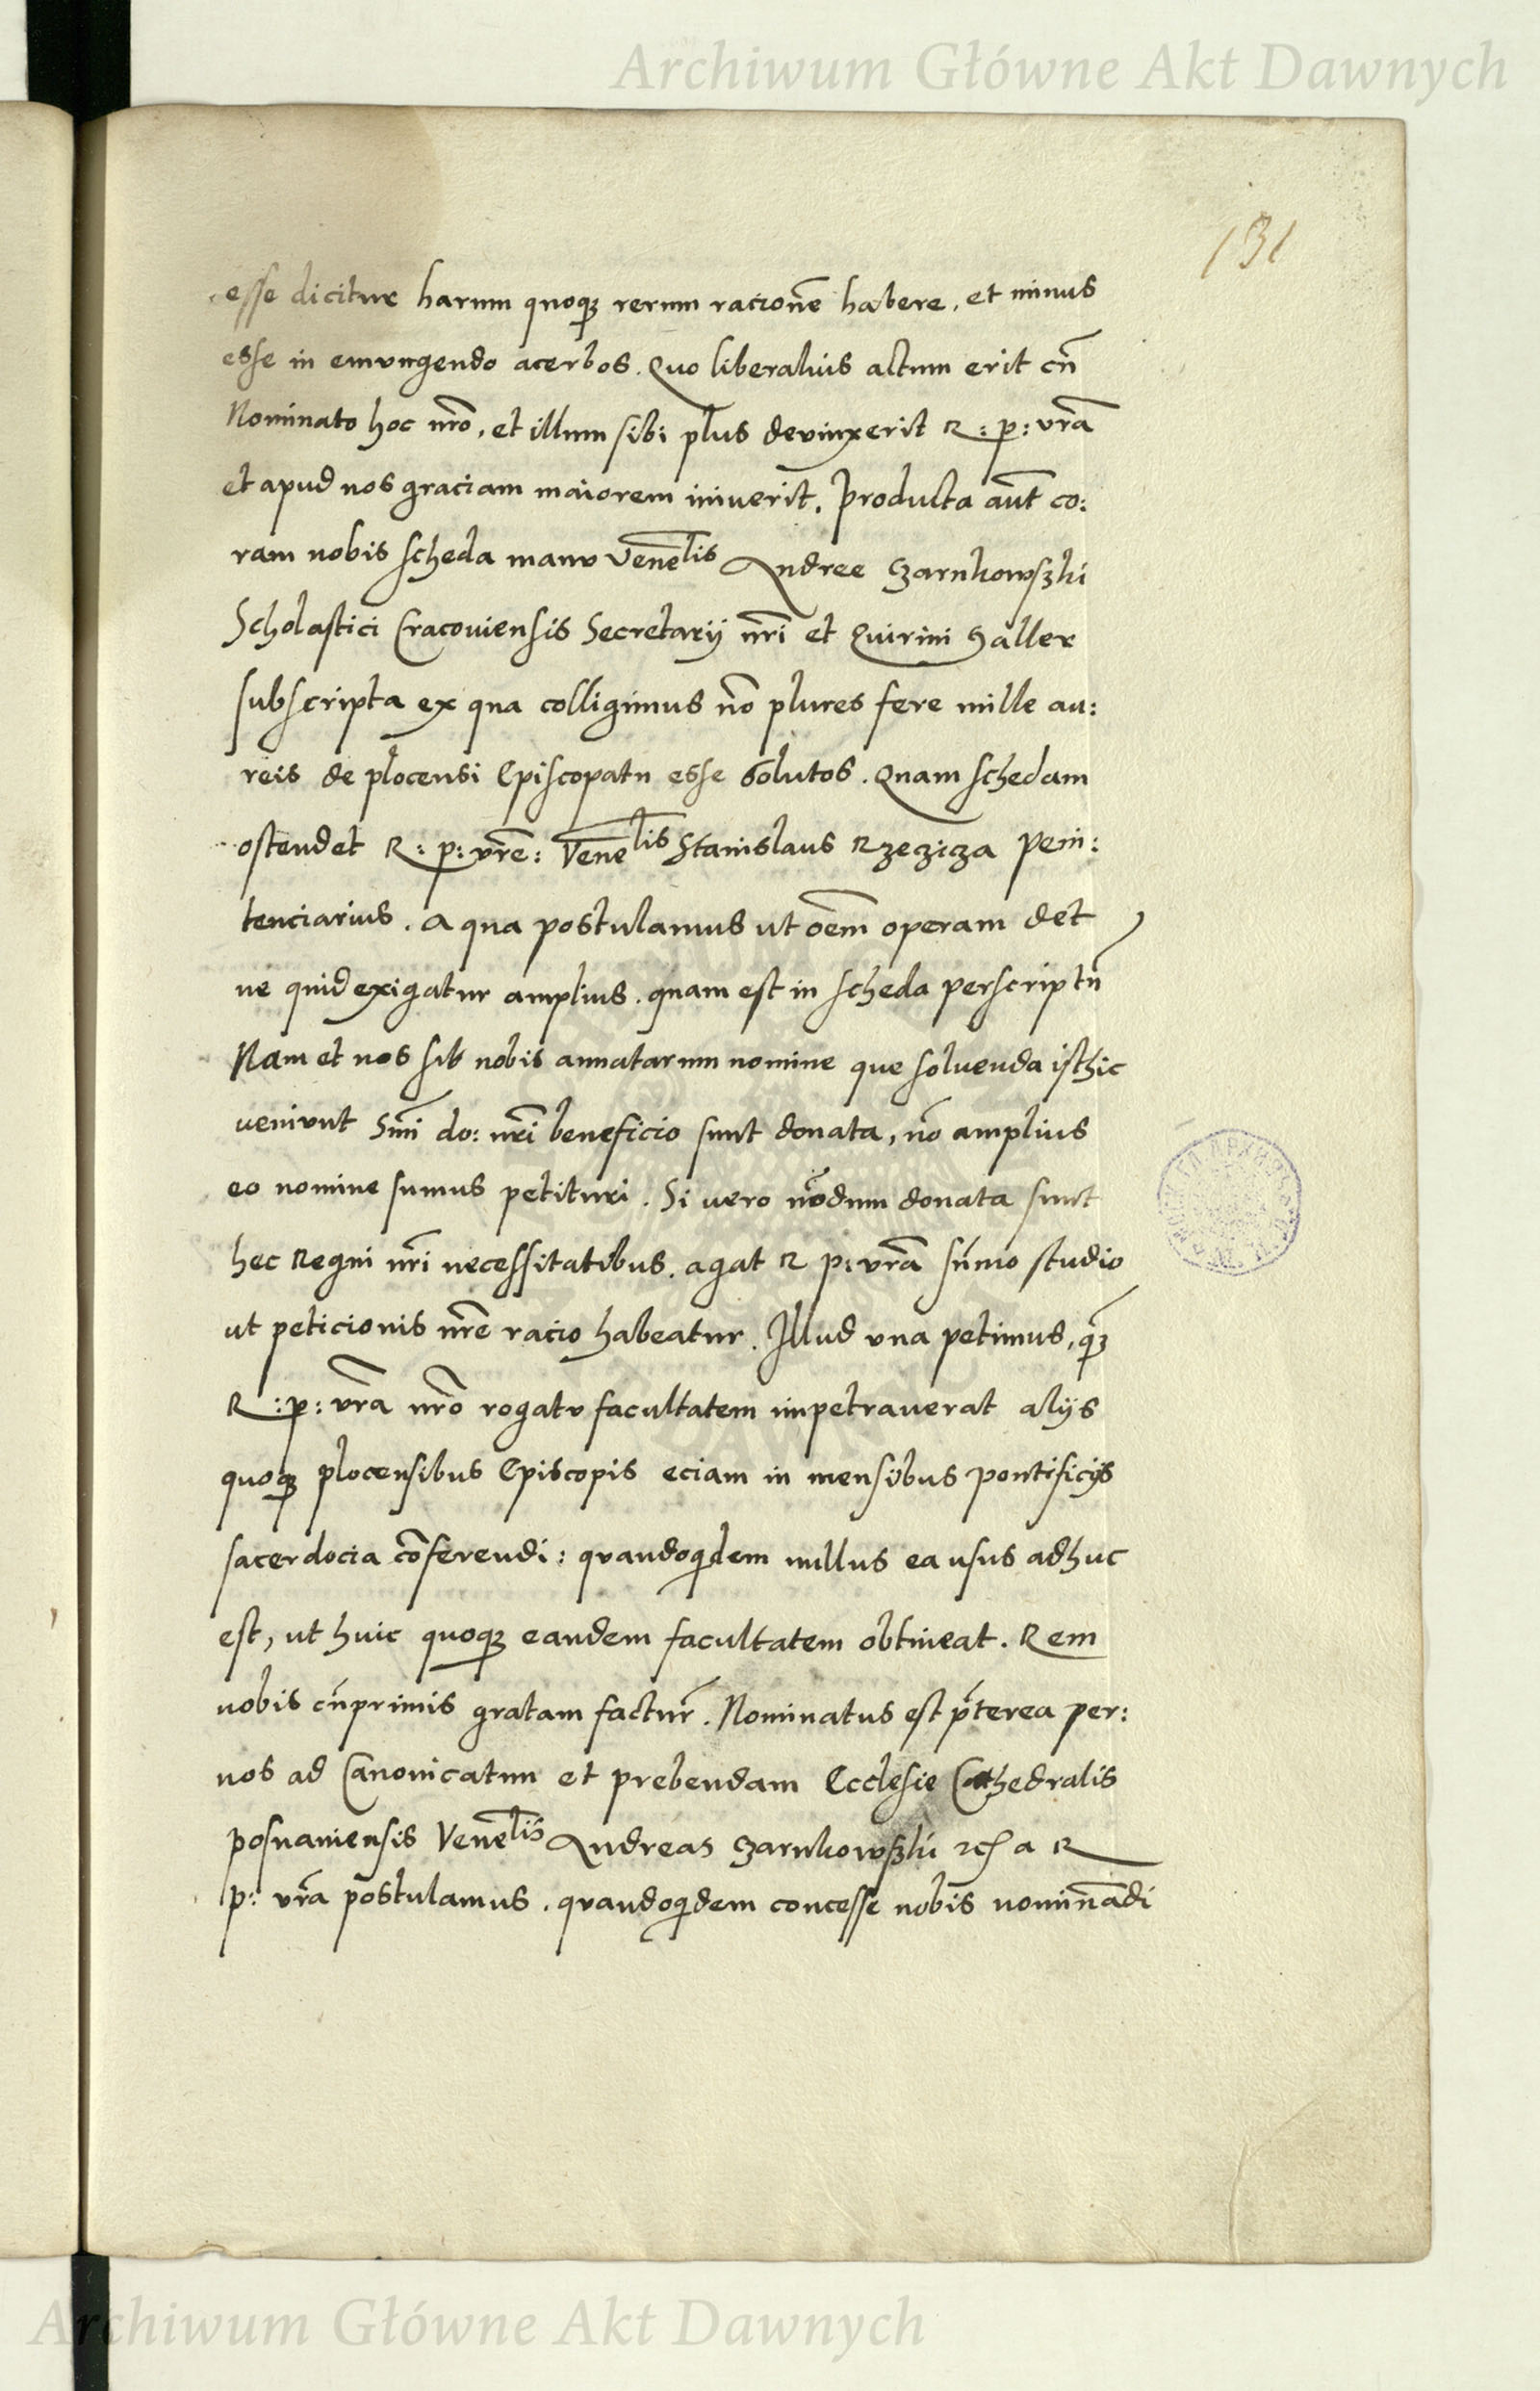 Archiwum Główne Akt Dawnych
131
esse dicitur harum quoqꝫ rerum racionē habere, et minus
esse in emungendo acerbos. Quo liberalius actum erit cū
Nominato hoc nr̄o, et illum sibi plus devinxerit R: p: vr̄a
et apud nos graciam maiorem iniverit. Producta aūt co:
ram nobis scheda manu Venēlis Andree Czarnkowszki
Scholastici Cracoviensis Secretarij nr̄i et Quirini Galler
subscripta ex qua colligimus nō plures fere mille au:
reis de plocensi Episcopatu esse solutos. Quam schedam
ostendet R: p: vr̄e: Venēlis Stanislaus Rzeziza Peni:
tenciarius. A qua postulamus ut oēm operam det
ne quid exigatur amplius. quam est in scheda perscriptū
Nam et nos sib nobis annatarum nomine que solvenda isthic
venivnt Smī do: nr̄i beneficio sunt donata, nō amplius
eo nomine sumus petituri. Si vero nōdum donata sunt
hec Regni nr̄i necessitatibus. agat R p: vr̄a sūmo studio
ut peticionis nr̄e racio habeatur. Illud vna petimus, qꝫ
R: p: vr̄a nr̄o rogatv facultatem impetraverat alijs
quoqꝫ plocensibus Episcopis eciam in mensibus pontificijs
sacerdocia cōferendi: qvandoqdem nullus ea usus adhuc
est, ut huic quoqꝫ eandem facultatem obtineat. Rem
nobis cūprimis gratam factur̄. Nominatus est p̄terea per:
nos ad Canonicatum et prebendam Ecclesie Cathedralis
posnaniensis Venēlis Andreas Czarnkowszki etc̄ a R
p: vr̄a postulamus. qvandoqdem concesse nobis nominādi
Archiwum Główne Akt Dawnych